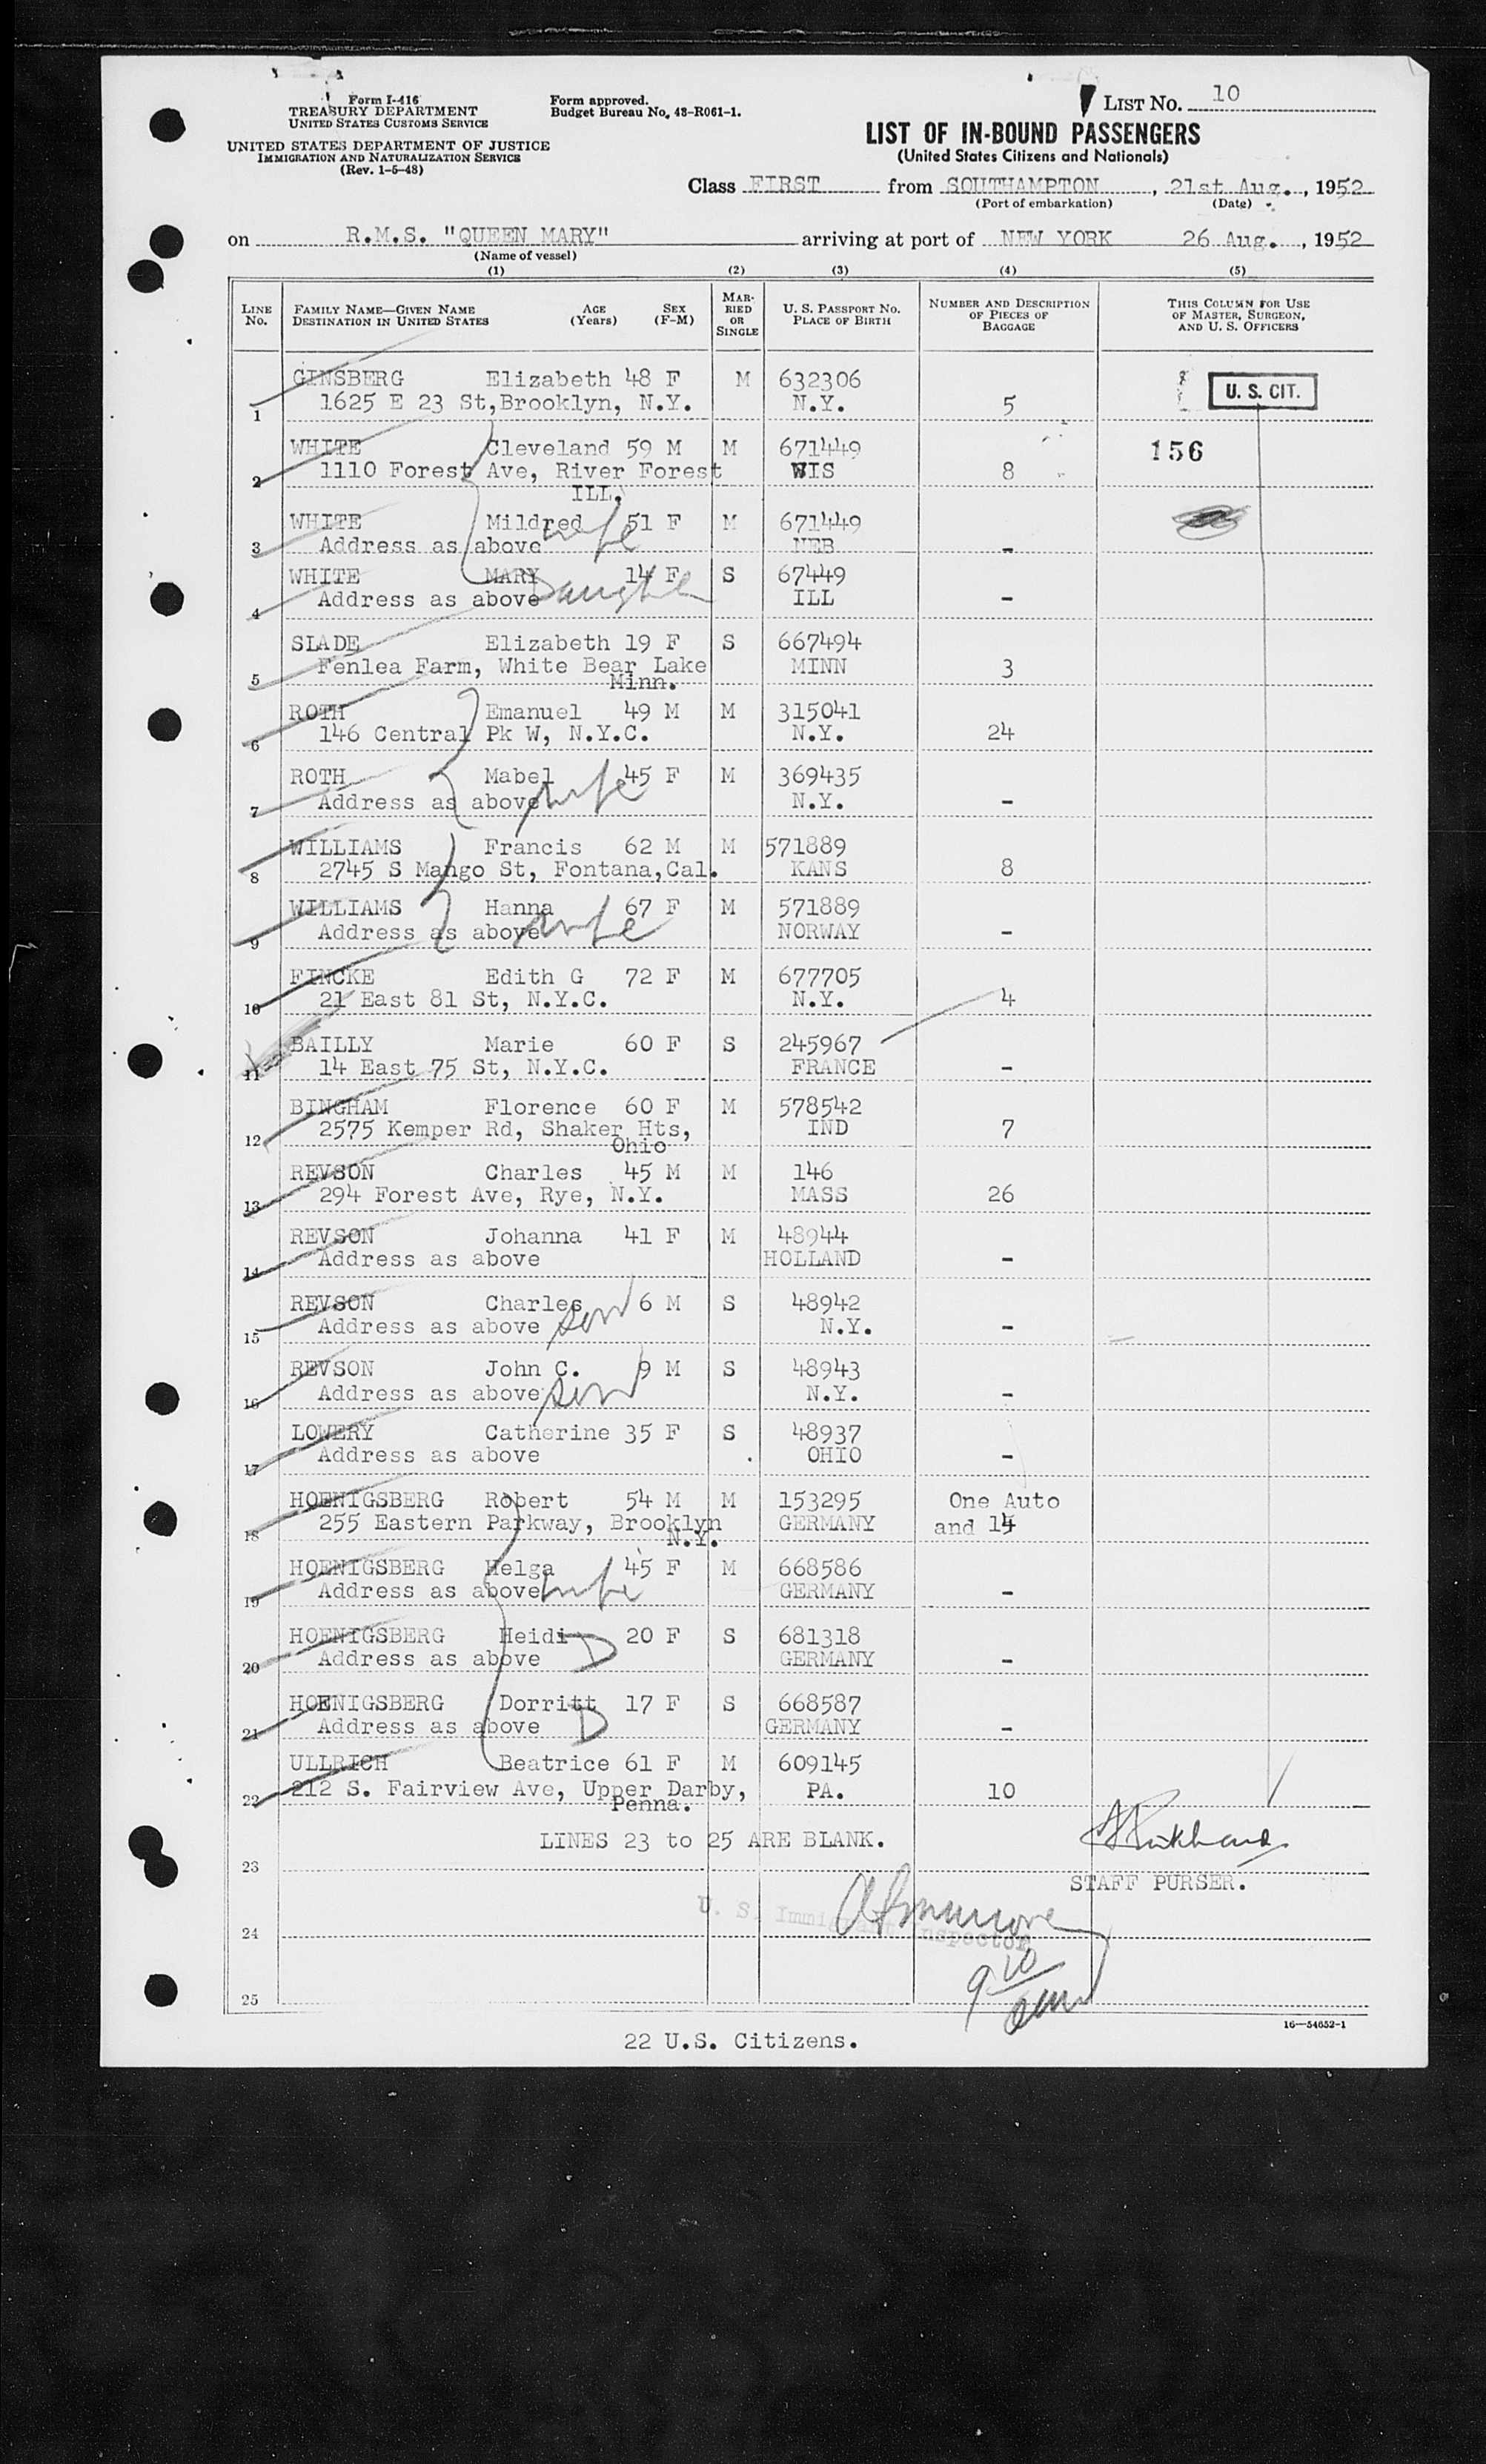 Form I-416
TREASURY DEPARTMENT
UNITED STATES CUSTOMS SERVICE
UNITED STATES DEPARTMENT OF JUSTICE
IMMIGRATION AND NATURALIZATION SERVICE
(Rev. 1-5-48)
Form approved.
Budget Bureau No. 43-R061-1.
LIST NO. 10
LIST OF IN-BOUND PASSENGERS
(United States Citizens and Nationals)
Class FIRST from SOUTHAMPTON, 21st Aug., 1952
(Port of embarkation) (Date)
on R.M.S. "QUEEN MARY" arriving at port of NEW YORK 26 Aug., 1952
(Name of vessel)
(1) (2) (3) (4) (5)
LINE No. FAMILY NAME—GIVEN NAME DESTINATION IN UNITED STATES AGE (Years) SEX (F-M) MARRIED OR SINGLE U. S. PASSPORT NO. PLACE OF BIRTH NUMBER AND DESCRIPTION OF PIECES OF BAGGAGE THIS COLUMN FOR USE OF MASTER, SURGEON, AND U. S. OFFICERS
GINSBERG Elizabeth 48 F M 632306 U. S. CIT.
1 1625 E 23 St, Brooklyn, N.Y. N.Y. 5
WHITE Cleveland 59 M M 671449 156
2 1110 Forest Ave, River Forest WIS 8
ILL.
WHITE Mildred 51 F M 671449
3 Address as above wife NEB -
WHITE MARY 14 F S 67449
4 Address as above Daughter ILL -
SLADE Elizabeth 19 F S 667494
5 Fenlea Farm, White Bear Lake MINN 3
Minn.
ROTH Emanuel 49 M M 315041
6 146 Central Pk W, N.Y.C. N.Y. 24
ROTH Mabel 45 F M 369435
7 Address as above wife N.Y. -
WILLIAMS Francis 62 M M 571889
8 2745 S Mango St, Fontana, Cal. KANS 8
WILLIAMS Hanna 67 F M 571889
9 Address as above wife NORWAY -
FINCKE Edith G 72 F M 677705
10 21 East 81 St, N.Y.C. N.Y. 4
BAILLY Marie 60 F S 245967
11 14 East 75 St, N.Y.C. FRANCE -
BINGHAM Florence 60 F M 578542
12 2575 Kemper Rd, Shaker Hts, IND 7
Ohio
REVSON Charles 45 M M 146
13 294 Forest Ave, Rye, N.Y. MASS 26
REVSON Johanna 41 F M 48944
14 Address as above HOLLAND -
REVSON Charles 6 M S 48942
15 Address as above son N.Y. -
REVSON John C. 9 M S 48943
16 Address as above son N.Y. -
LOWERY Catherine 35 F S 48937
17 Address as above OHIO -
HOENIGSBERG Robert 54 M M 153295 One Auto
18 255 Eastern Parkway, Brooklyn GERMANY and 14
N.Y.
HOENIGSBERG Helga 45 F M 668586
19 Address as above wife GERMANY -
HOENIGSBERG Heidi D 20 F S 681318
20 Address as above GERMANY -
HOENIGSBERG Dorritt 17 F S 668587
21 Address as above D GERMANY -
ULLRICH Beatrice 61 F M 609145
22 212 S. Fairview Ave, Upper Darby, PA. 10
Penna.
LINES 23 to 25 ARE BLANK.
23
STAFF PURSER.
U. S. Immigrant Inspector
24
9 10
25
16—54652-1
22 U.S. Citizens.